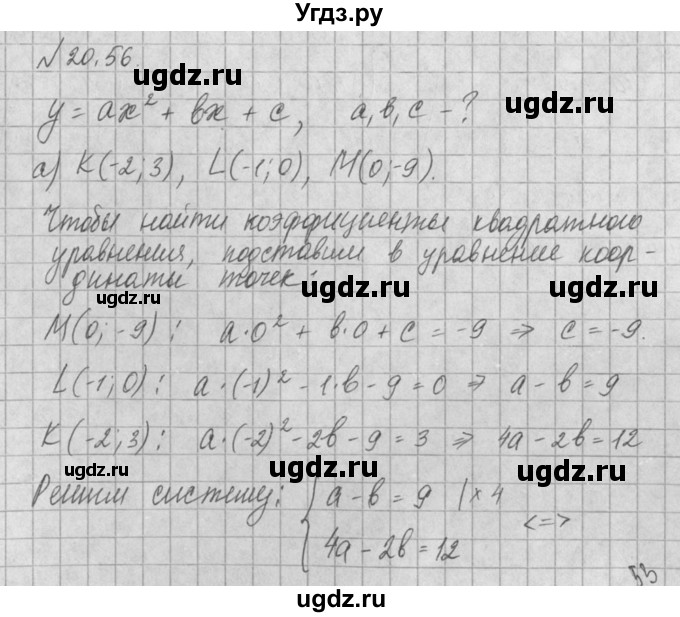 Угдз.ру
№20.56.
ugdz.ru ugdz.ru
y = ax² + вx + c, a, в, c - ?
а) K(-2; 3), L(-1; 0), M(0; -9).
ugdz.ru ugdz.ru
Чтобы найти коэффициенты квадратного
уравнения, подставим в уравнение коор-
динаты точек:
ugdz.ru ugdz.ru
M(0; -9): a·0² + в·0 + c = -9 ⇒ c = -9.
ugdz.ru ugdz.ru
L(-1; 0): a·(-1)² - 1·в - 9 = 0 ⇒ a - в = 9
K(-2; 3): a·(-2)² - 2в - 9 = 3 ⇒ 4a - 2в = 12
ugdz.ru ugdz.ru ugdz.ru
Решим систему: { a - в = 9 | × 4
<=>
4a - 2в = 12
53
ugdz.ru
ugdz.ru